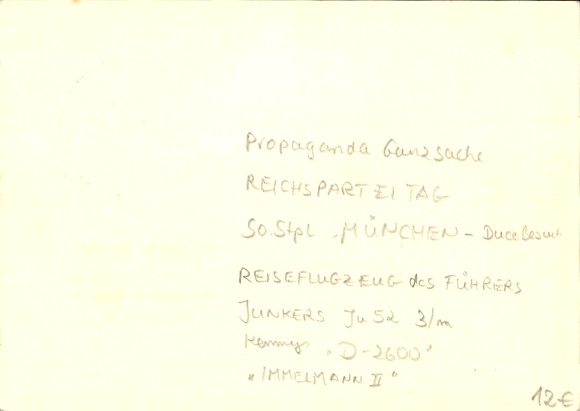 Propaganda Ganzsache
REICHSPARTEITAG
So.Stpl. MÜNCHEN - Duce Besuch
REISEFLUGZEUG des FÜHRERS
JUNKERS Ju 52 3/m
"D-2600"
"IMMELMANN II"
12€